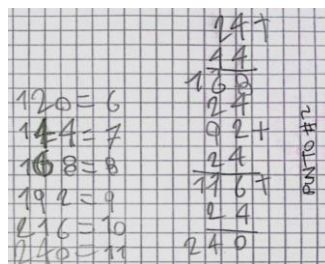 120=6
144=7
168=8
192=9
216=10
240=11
24+
44
168
24
92+
24
116+
24
240
PUNTO #2